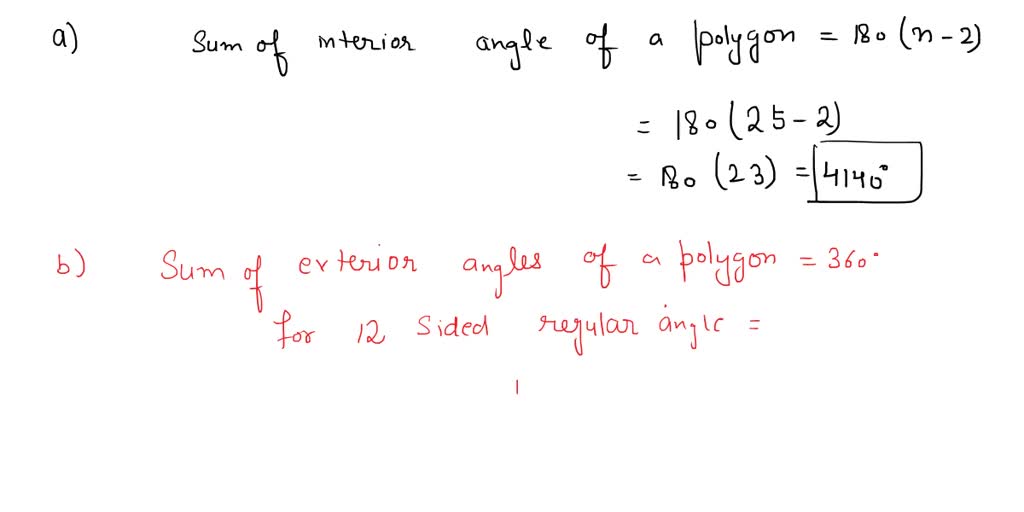 a) Sum of interior angle of a polygon = 180 (n - 2)
= 180 (25 - 2)
= 180 (23) = 4140°
b) Sum of exterior angles of a polygon = 360°
for 12 sided regular angle =